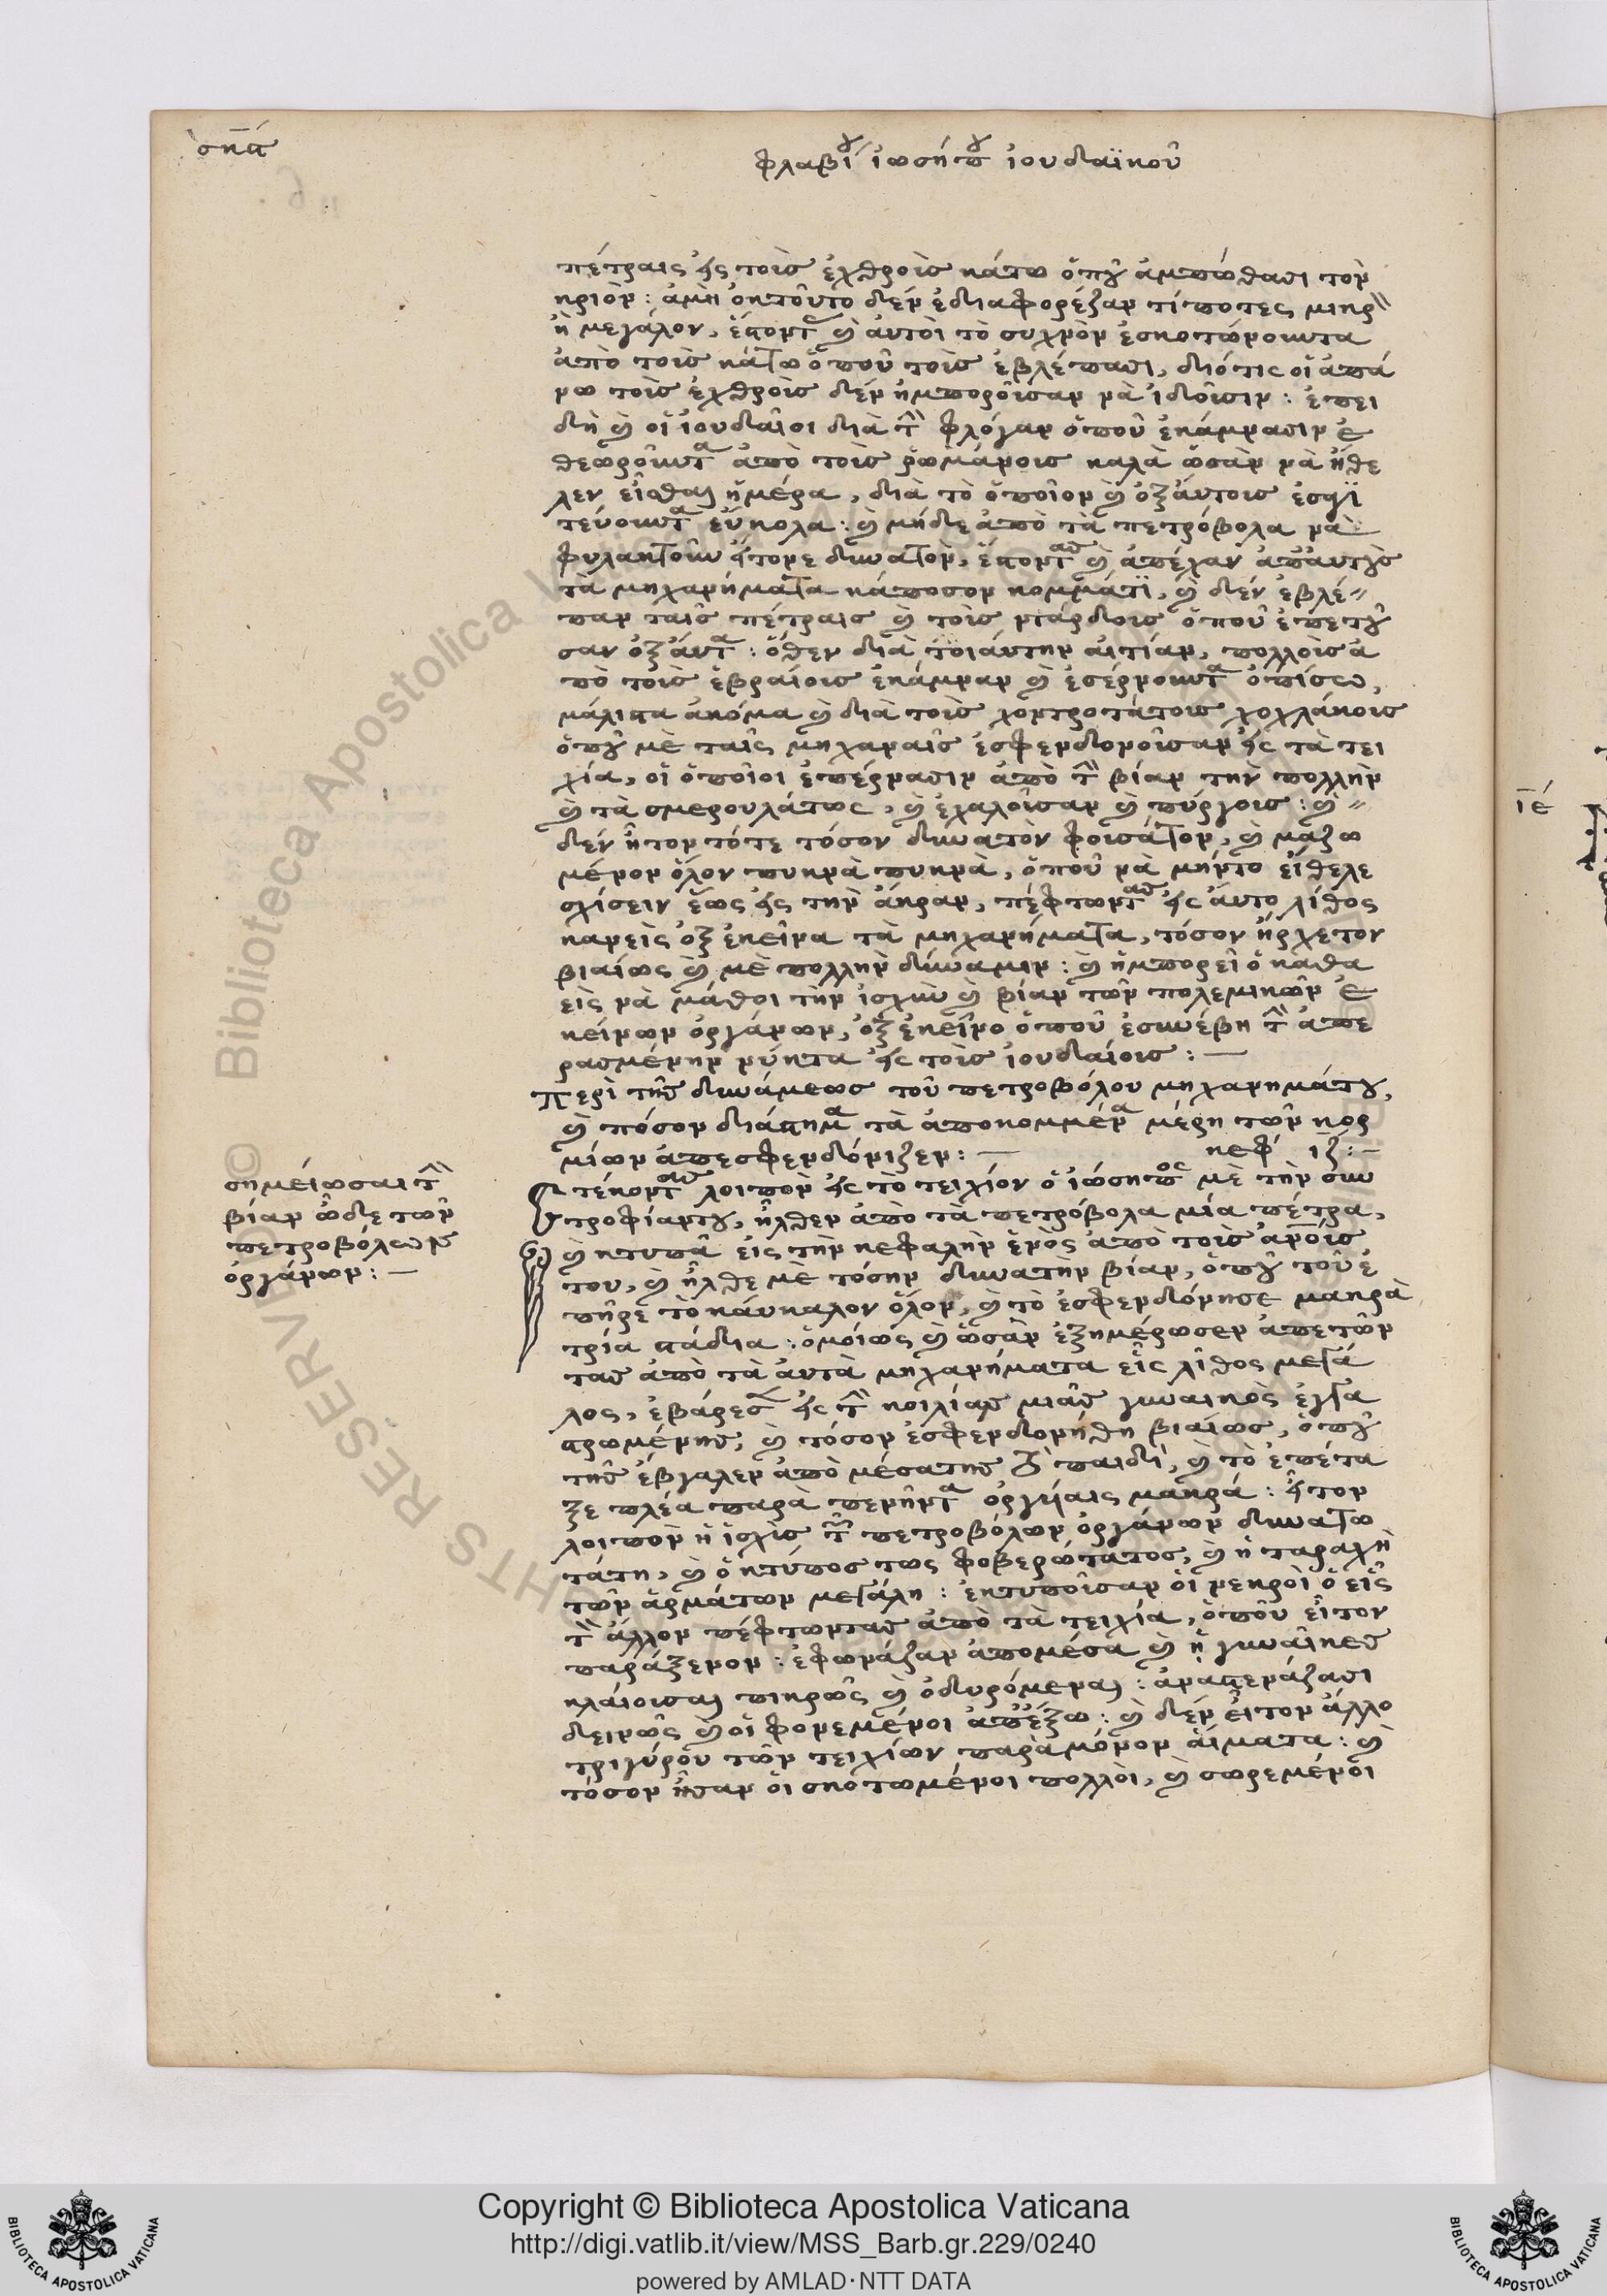 σπα
φλαβίου ἰωσήπου ἰουδαϊκοῦ
πέτραις εἰς τοὺς ἐχθροὺς κάτω ὁποῦ ἀμπώθασι τὸν
κριὸν: ἀμὴ ὀκτοῦτο δὲν ἐδιαφορέζαν τίποτες, μικρὸν
ἢ μεγάλον, ἔστοντας καὶ αὐτοὶ τὸ συχνὸν ἐσκοτώνουντα
ἀπὸ τοὺς κάτω ὁποῦ τοὺς ἐβλέπασι, διότις οἱ ἀπά
νω τοὺς ἐχθροὺς δὲν ἠμποροῦσαν νὰ ἰδοῦσιν: ἐπει
δὴ καὶ οἱ ἰουδαῖοι διὰ τὴν φλόγαν ὁποῦ ἐκάμνασιν ἐ
θεωροῦντα ἀπὸ τοὺς ῥωμάνους καλὰ ὡσὰν νὰ ἤθε
λεν εἶσθαι ἡμέρα, διὰ τὸ ὁποῖον καὶ ὀξαύτους ἐσαϊ
τεύουντα εὔκολα: καὶ μήδε ἀπὸ τὰ πετρόβολα νὰ
φυλακτοῦν ἦτονε δυνατὸν, ἔστοντας καὶ ἀπέχαν ἀπαυτοὺς
τὰ μηχανήματα κάποσον κομμάτϊ, καὶ δὲν ἐβλέ
παν ταῖς πέτραις καὶ τοὺς ντάρδους ὁποῦ ἐπετοῦ
σαν ὀξαυτα: ὅθεν διὰ τοιαύτην αἰτίαν, πολλοὺς ἀ
πὸ τοὺς ἑβραίους ἐκάμναν καὶ ἐσέρνουντα ὀπίσω,
μάλιστα ἀκόμα καὶ διὰ τοὺς χοντροτάτους χοχλάκους
ὁποῦ μὲ ταῖς μηχαναῖς ἐσφενδονοῦσαν εἰς τὰ τει
χία, οἱ ὁποῖοι ἐπέρνασιν ἀπὸ τὴν βίαν τὴν πολλὴν
καὶ τὰ σμερουλάτως, καὶ ἐχαλοῦσαν καὶ πύργους: καὶ
δὲν ἦτον τότε τόσον δυνατὸν φουσάτον, καὶ μαζω
μένον ὅλον πυκνὰ πυκνὰ, ὁποῦ νὰ μήντο εἴθελε
σχίσειν ἕως εἰς τὴν ἄκραν, πέφτωντας εἰς αὐτο λίθος
κανεὶς ὀξ ἐκεῖνα τὰ μηχανήματα, τόσον ἤρχετον
βιαίως καὶ μὲ πολλὴν δύναμιν: καὶ ἠμπορεῖ ὁ κάθα
εἷς νὰ μάθοι τὴν ἰσχὺν καὶ βίαν τῶν πολεμικῶν ἐ
κείνων ὀργάνων, ὀξ ἐκεῖνο ὁποῦ ἐσυνέβη τὴν ἀπε
ρασμένην νύκτα εἰς τοὺς ἰουδαίους:—
Περὶ τῆς δυνάμεως τοῦ πετροβόλου μηχανημάτου,
καὶ πόσον διάστημα τὰ ἀποκομμένα μέρη τῶν κορ
μίων ἀπεσφενδόνιζεν:— κεφ ιζ:—
Στέκοντας λοιπὸν εἰς τὸ τειχίον ὁ ἰώσηπος μὲ τὴν συν
τροφίαντου, ἦλθεν ἀπὸ τὰ πετρόβολα μία πέτρα,
καὶ κτυπᾶ εἰς τὴν κεφαλὴν ἑνὸς ἀπὸ τοὺς ἀνοῦς
του, καὶ ἦλθε μὲ τόσην δυνατὴν βίαν, ὁποῦ τοῦ ἐ
πῆρε τὸ κάυκαλον ὅλον, καὶ τὸ ἐσφενδόνησε μακρὰ
τρία στάδια: ὁμοίως καὶ ὡσὰν ἐξημέρωσεν ἀπετῶν
τας ἀπὸ τὰ αὐτὰ μηχανήματα εἷς λίθος μεγά
λος, ἐβάρεσε εἰς τὴν κοιλίαν μιᾶς γυναικὸς ἐγγα
στρωμένης, καὶ τόσον ἐσφενδονήθη βιαίως, ὁποῦ
τῆς ἔβγαλεν ἀπὸ μέσατης τὸ παιδὶ, καὶ τὸ ἐπέτα
ξε πλέα παρὰ πενῆντα ὀργίαις μακρά: ἦτον
λοιπὸν ἡ ἰσχὺς τῶν πετροβόλων ὀργάνων δυνατω
τάτη, καὶ ὁ κτύπος τως φοβερώτατος, καὶ ἡ ταραχὴ
τῶν ἁρμάτων μεγάλη: ἐκτυποῦσαν οἱ νεκροὶ ὁ εἷς
τὸν ἄλλον πέφτωντας ἀπὸ τὰ τειχία, ὁποῦ εἶτον
παράξενον: ἐφωνάζαν ἀπομέσα καὶ ἡ γυναῖκες
κλαίουσαι πικρῶς καὶ ὀδυρόμεναι: ἀναστενάζασι
δεινῶς καὶ οἱ φονεμένοι ἀπέξω: καὶ δὲν εἶτον ἄλλο
τριγύρου τῶν τειχίων παρὰ μόνον αἵματα: καὶ
τόσον ἦσαν οἱ σκοτωμένοι πολλοὶ, καὶ σωρεμένοι
σημείωσαι τὴν
βίαν ὧδε τῶν
πετροβόλων
ὀργάνων:—
ιέ
Copyright © Biblioteca Apostolica Vaticana
http://digi.vatlib.it/view/MSS_Barb.gr.229/0240
powered by AMLAD·NTT DATA
BIBLIOTECA APOSTOLICA VATICANA
BIBLIOTECA APOSTOLICA VATICANA